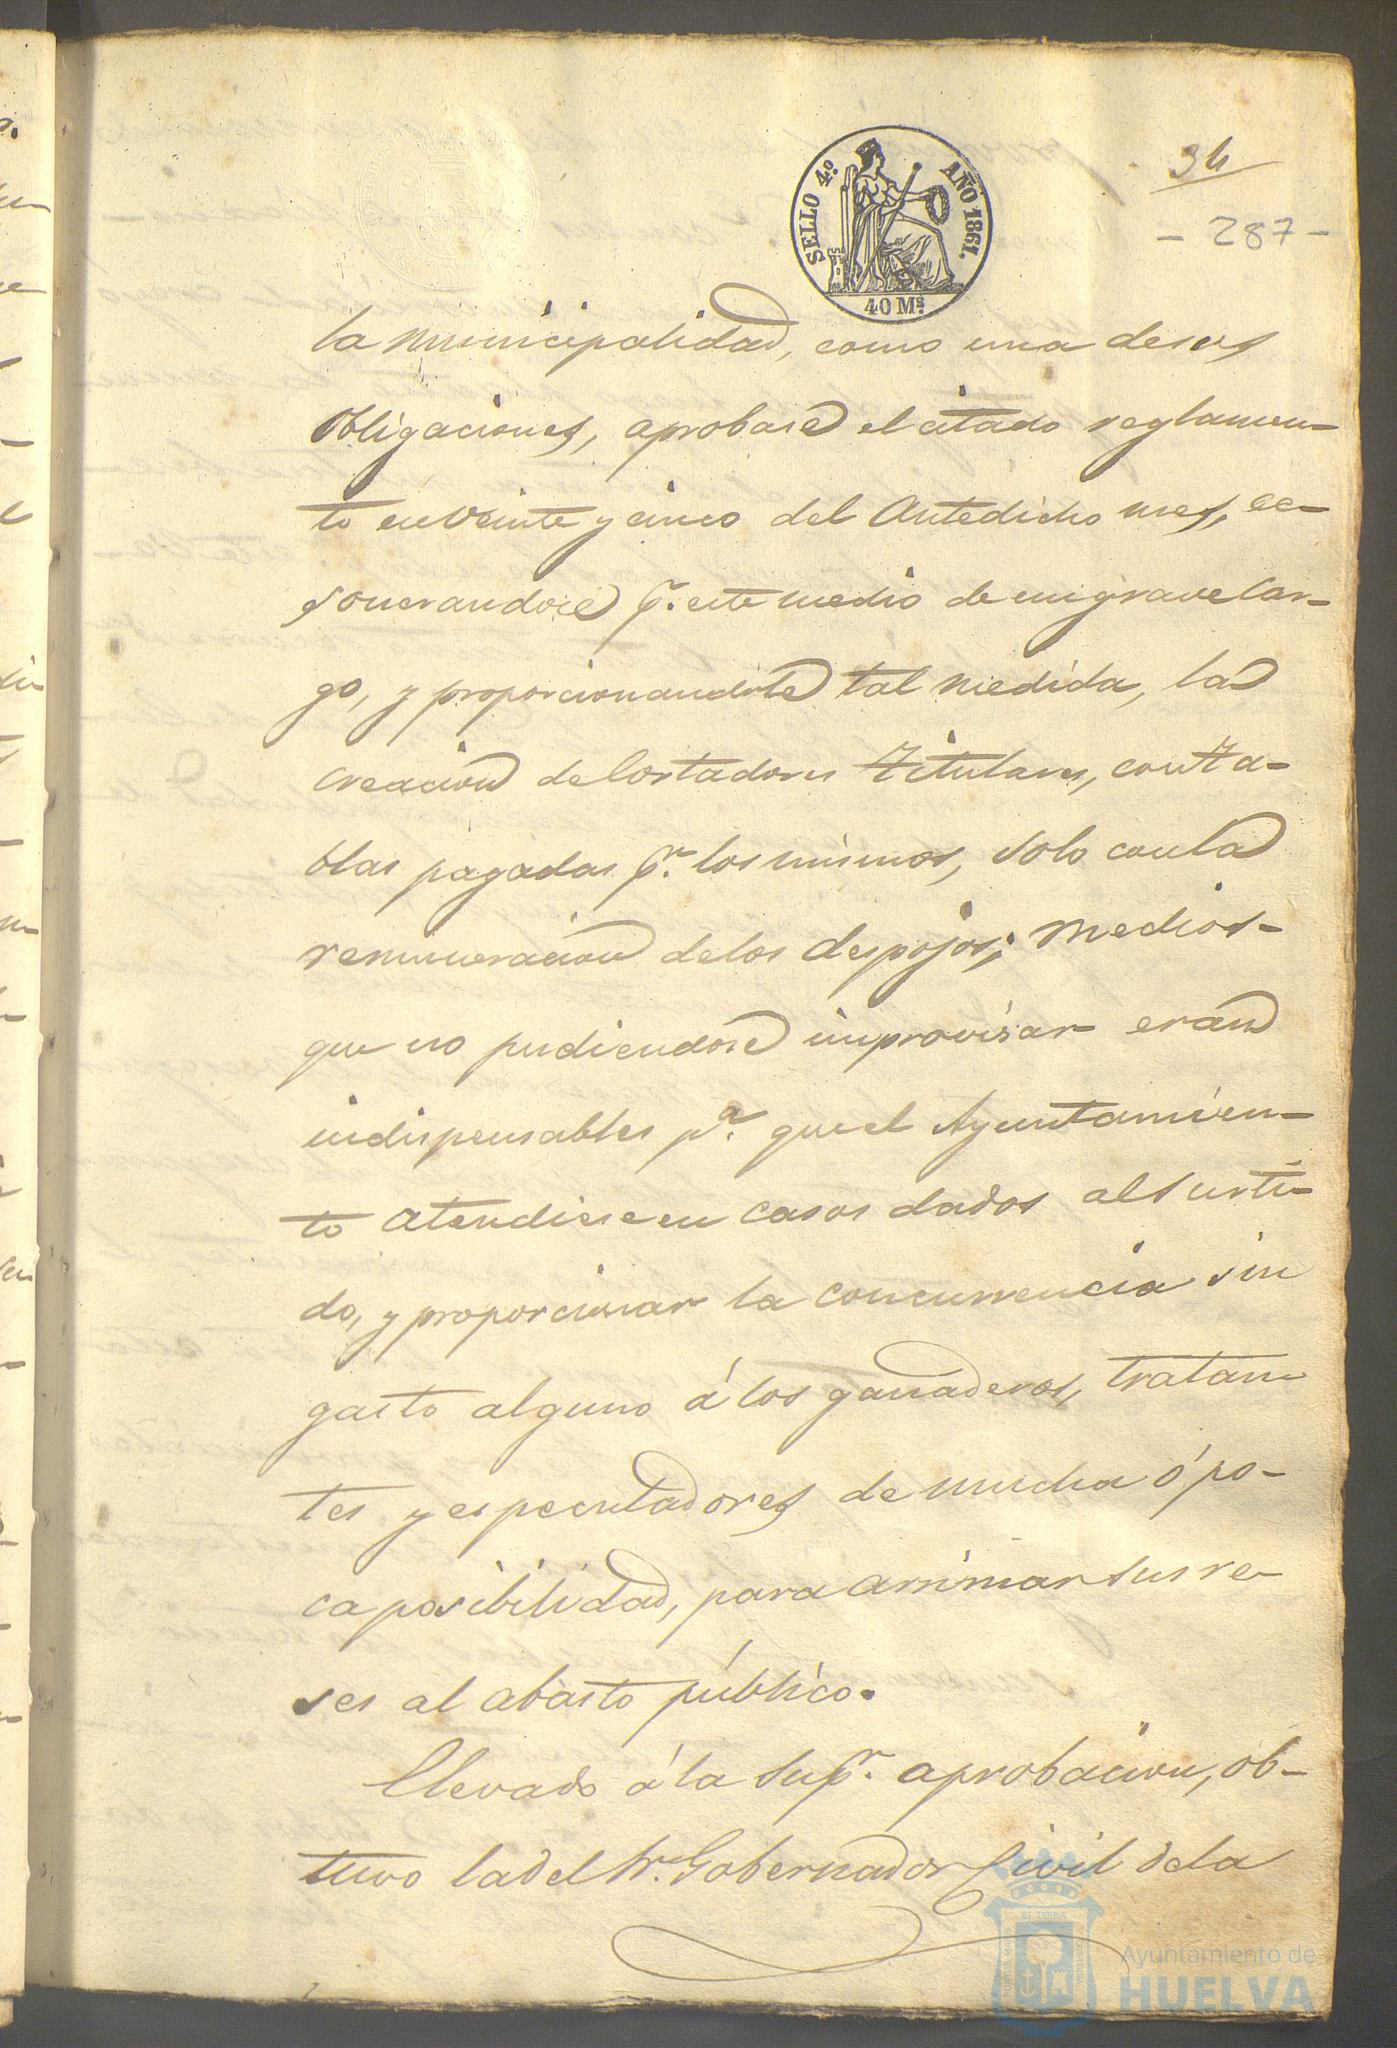 SELLO 4º AÑO 1861.
40 Ms.
34
- 287 -
la municipalidad, como una de sus
obligaciones, aprobase el citado reglamen-
to en veinte y cinco del antedicho mes, ec-
sonerandose pr. este medio de un grave car-
go, y proporcionandole tal medida, la
creacion de Cortadores titulares, con ta-
blas pagadas pr. los mismos, solo con la
remuneracion de los despojos; medios
que no pudiendose improvisar eran
indispensables pa. que el Ayuntamien-
to atendiese en casos dados al surti-
do, y proporcionar la concurrencia sin
gasto alguno á los ganaderos, tratan-
tes y especuladores de mucha ó po-
ca posibilidad, para arrimar sus re-
ses al abasto público.
Llevado á la supr. aprobacion, ob-
tuvo la del Sr. Gobernador Civil de la
Ayuntamiento de
HUELVA